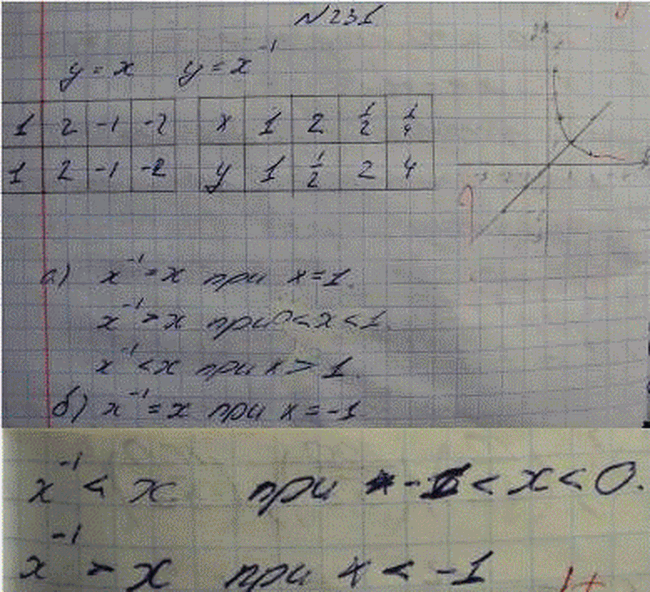 №231
y = x    y = x⁻¹
1 2 -1 -2    x 1 2 1/2 1/4
1 2 -1 -2    y 1 1/2 2 4
а) x⁻¹ = x при x = 1.
x⁻¹ > x при 0 < x < 1.
x⁻¹ < x при x > 1.
б) x⁻¹ = x при x = -1
x⁻¹ < x при -1 < x < 0.
x⁻¹ > x при x < -1